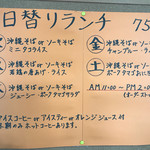 日替りランチ 75
沖縄そば or ソーキそば
ミニタコライス
沖縄そば or ソーキそば
若鶏の唐あげ・ライス
沖縄そば or ソーキそば
ジューシー・ポークタマゴサラダ
金 沖縄そば or ソーキ
チャンプルー・ライ
土 沖縄そば or ソーキ
ポークタマゴおにぎ
AM 11:00 ~ PM 2:
(オーダーストッ
アイスコーヒー or アイスティー or オレンジジュース付
ホットコーヒーあります。